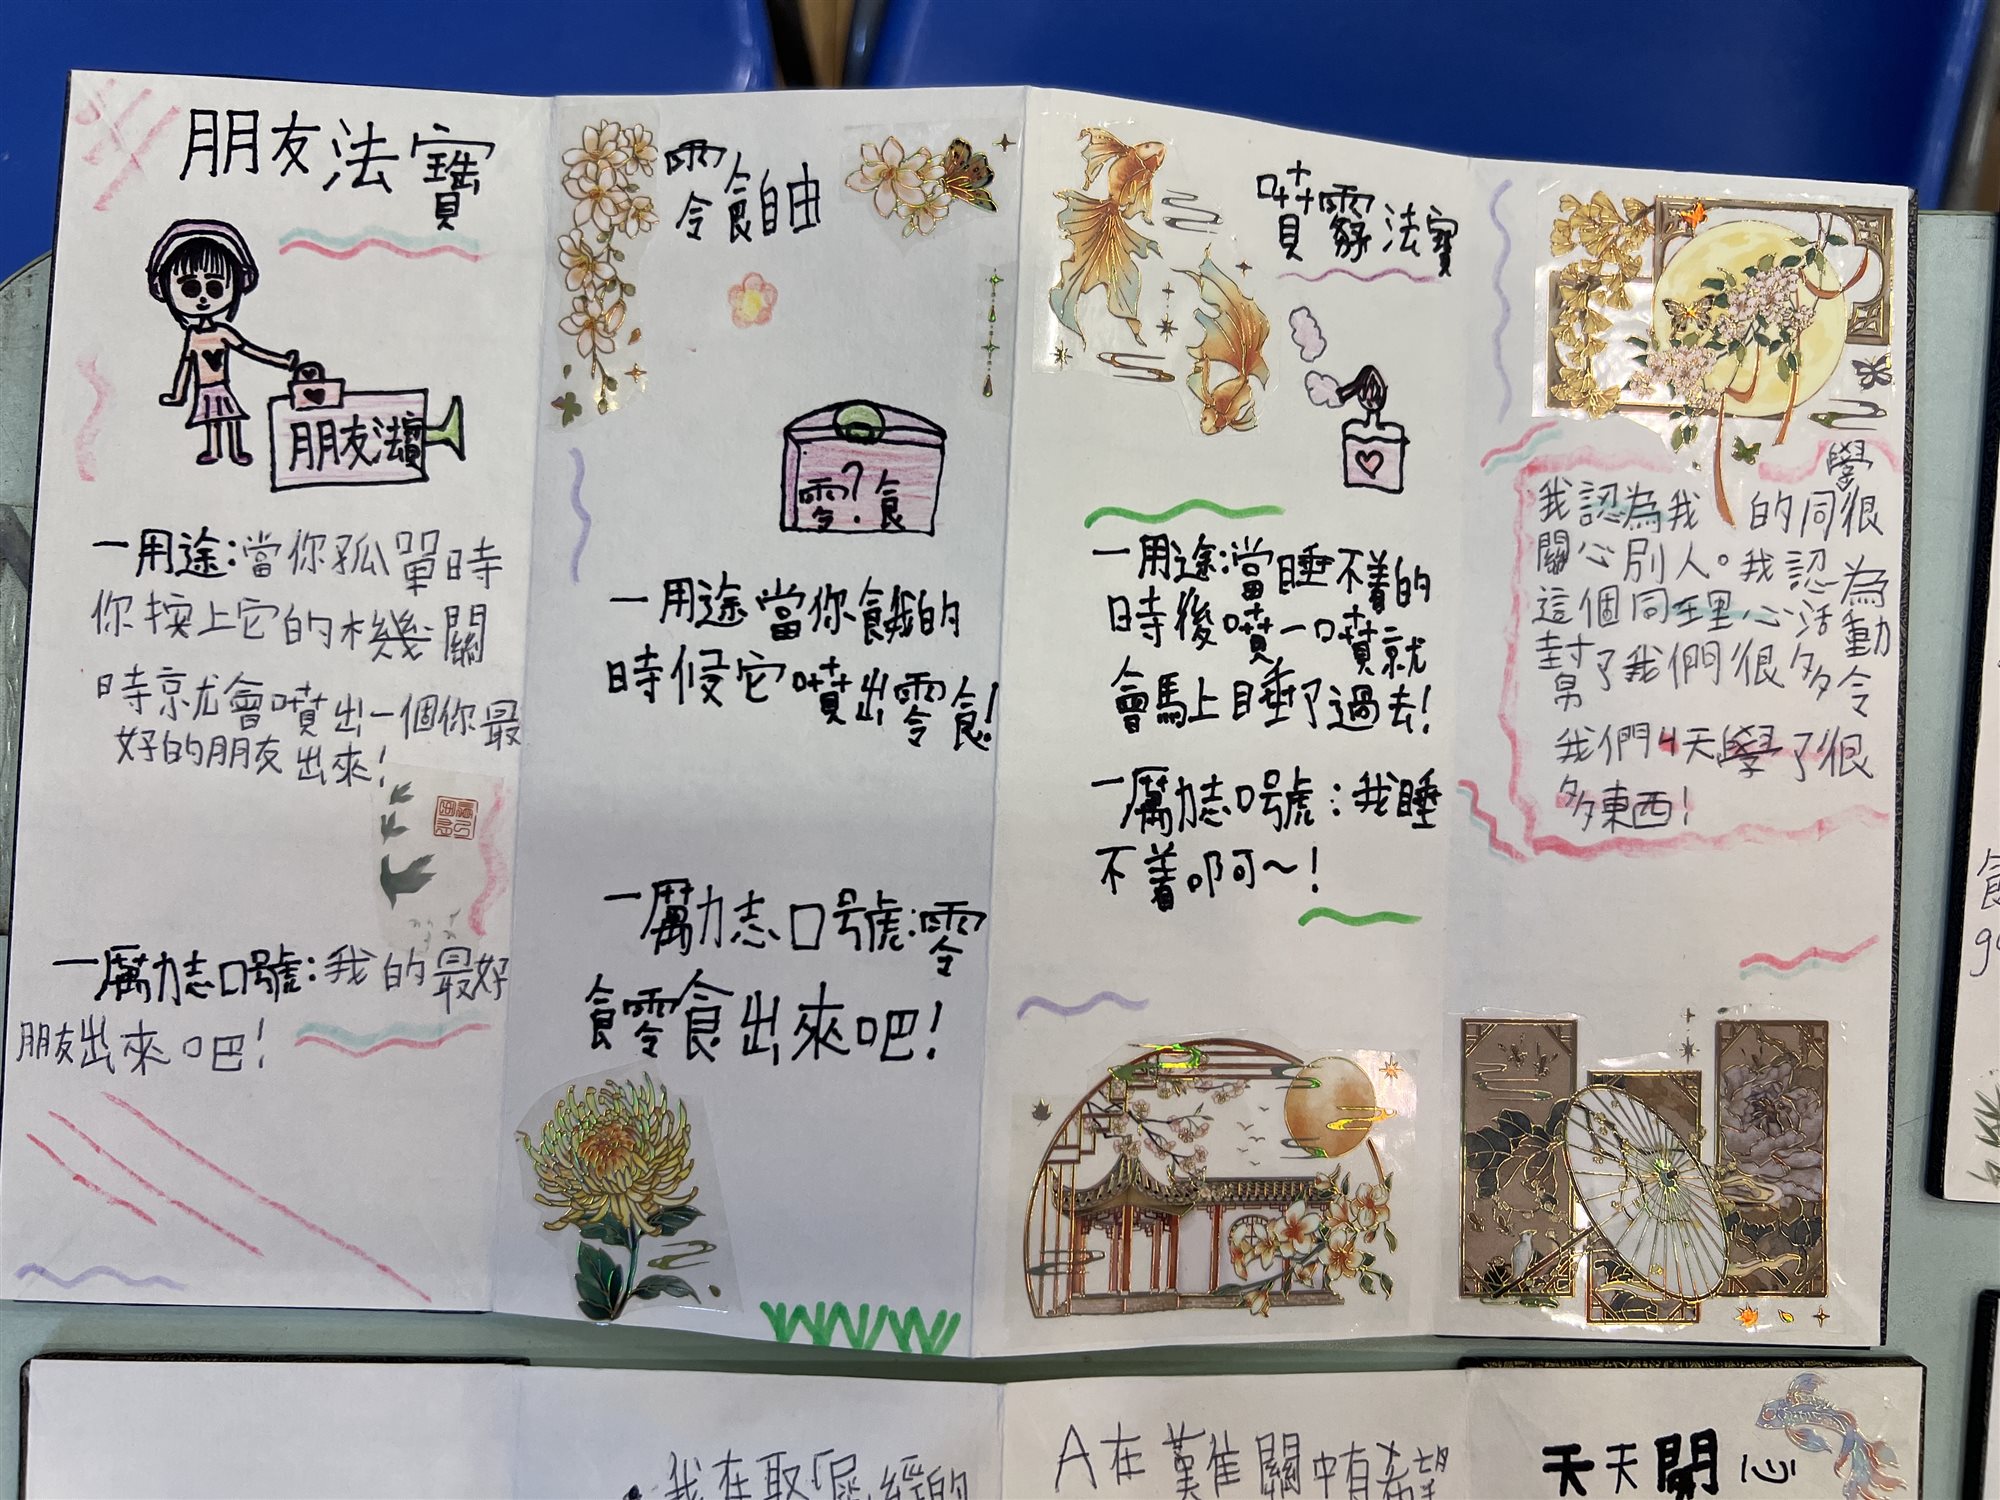 朋友法寶
朋友法寶
一用途:當你孤單時
你按上它的機關
時就會噴出一個你最
好的朋友出來!
一厲力志口號:我的最好
朋友出來吧!
零食自由
零?食
一用途當你餓的
時候它噴出零食!
一厲力志口號:零
食零食出來吧!
噴霧法寶
一用途:當睡不着的
時後噴一口噴就
會馬上睡了過去!
一厲力志口號:我睡
不着啊~!
我認為我 的同學很
關心別人。我認為
這個同理心活動
幫了我們很多令
我們4天學了很
多東西!
我在取 經的
A在難關中有希望
天天開心